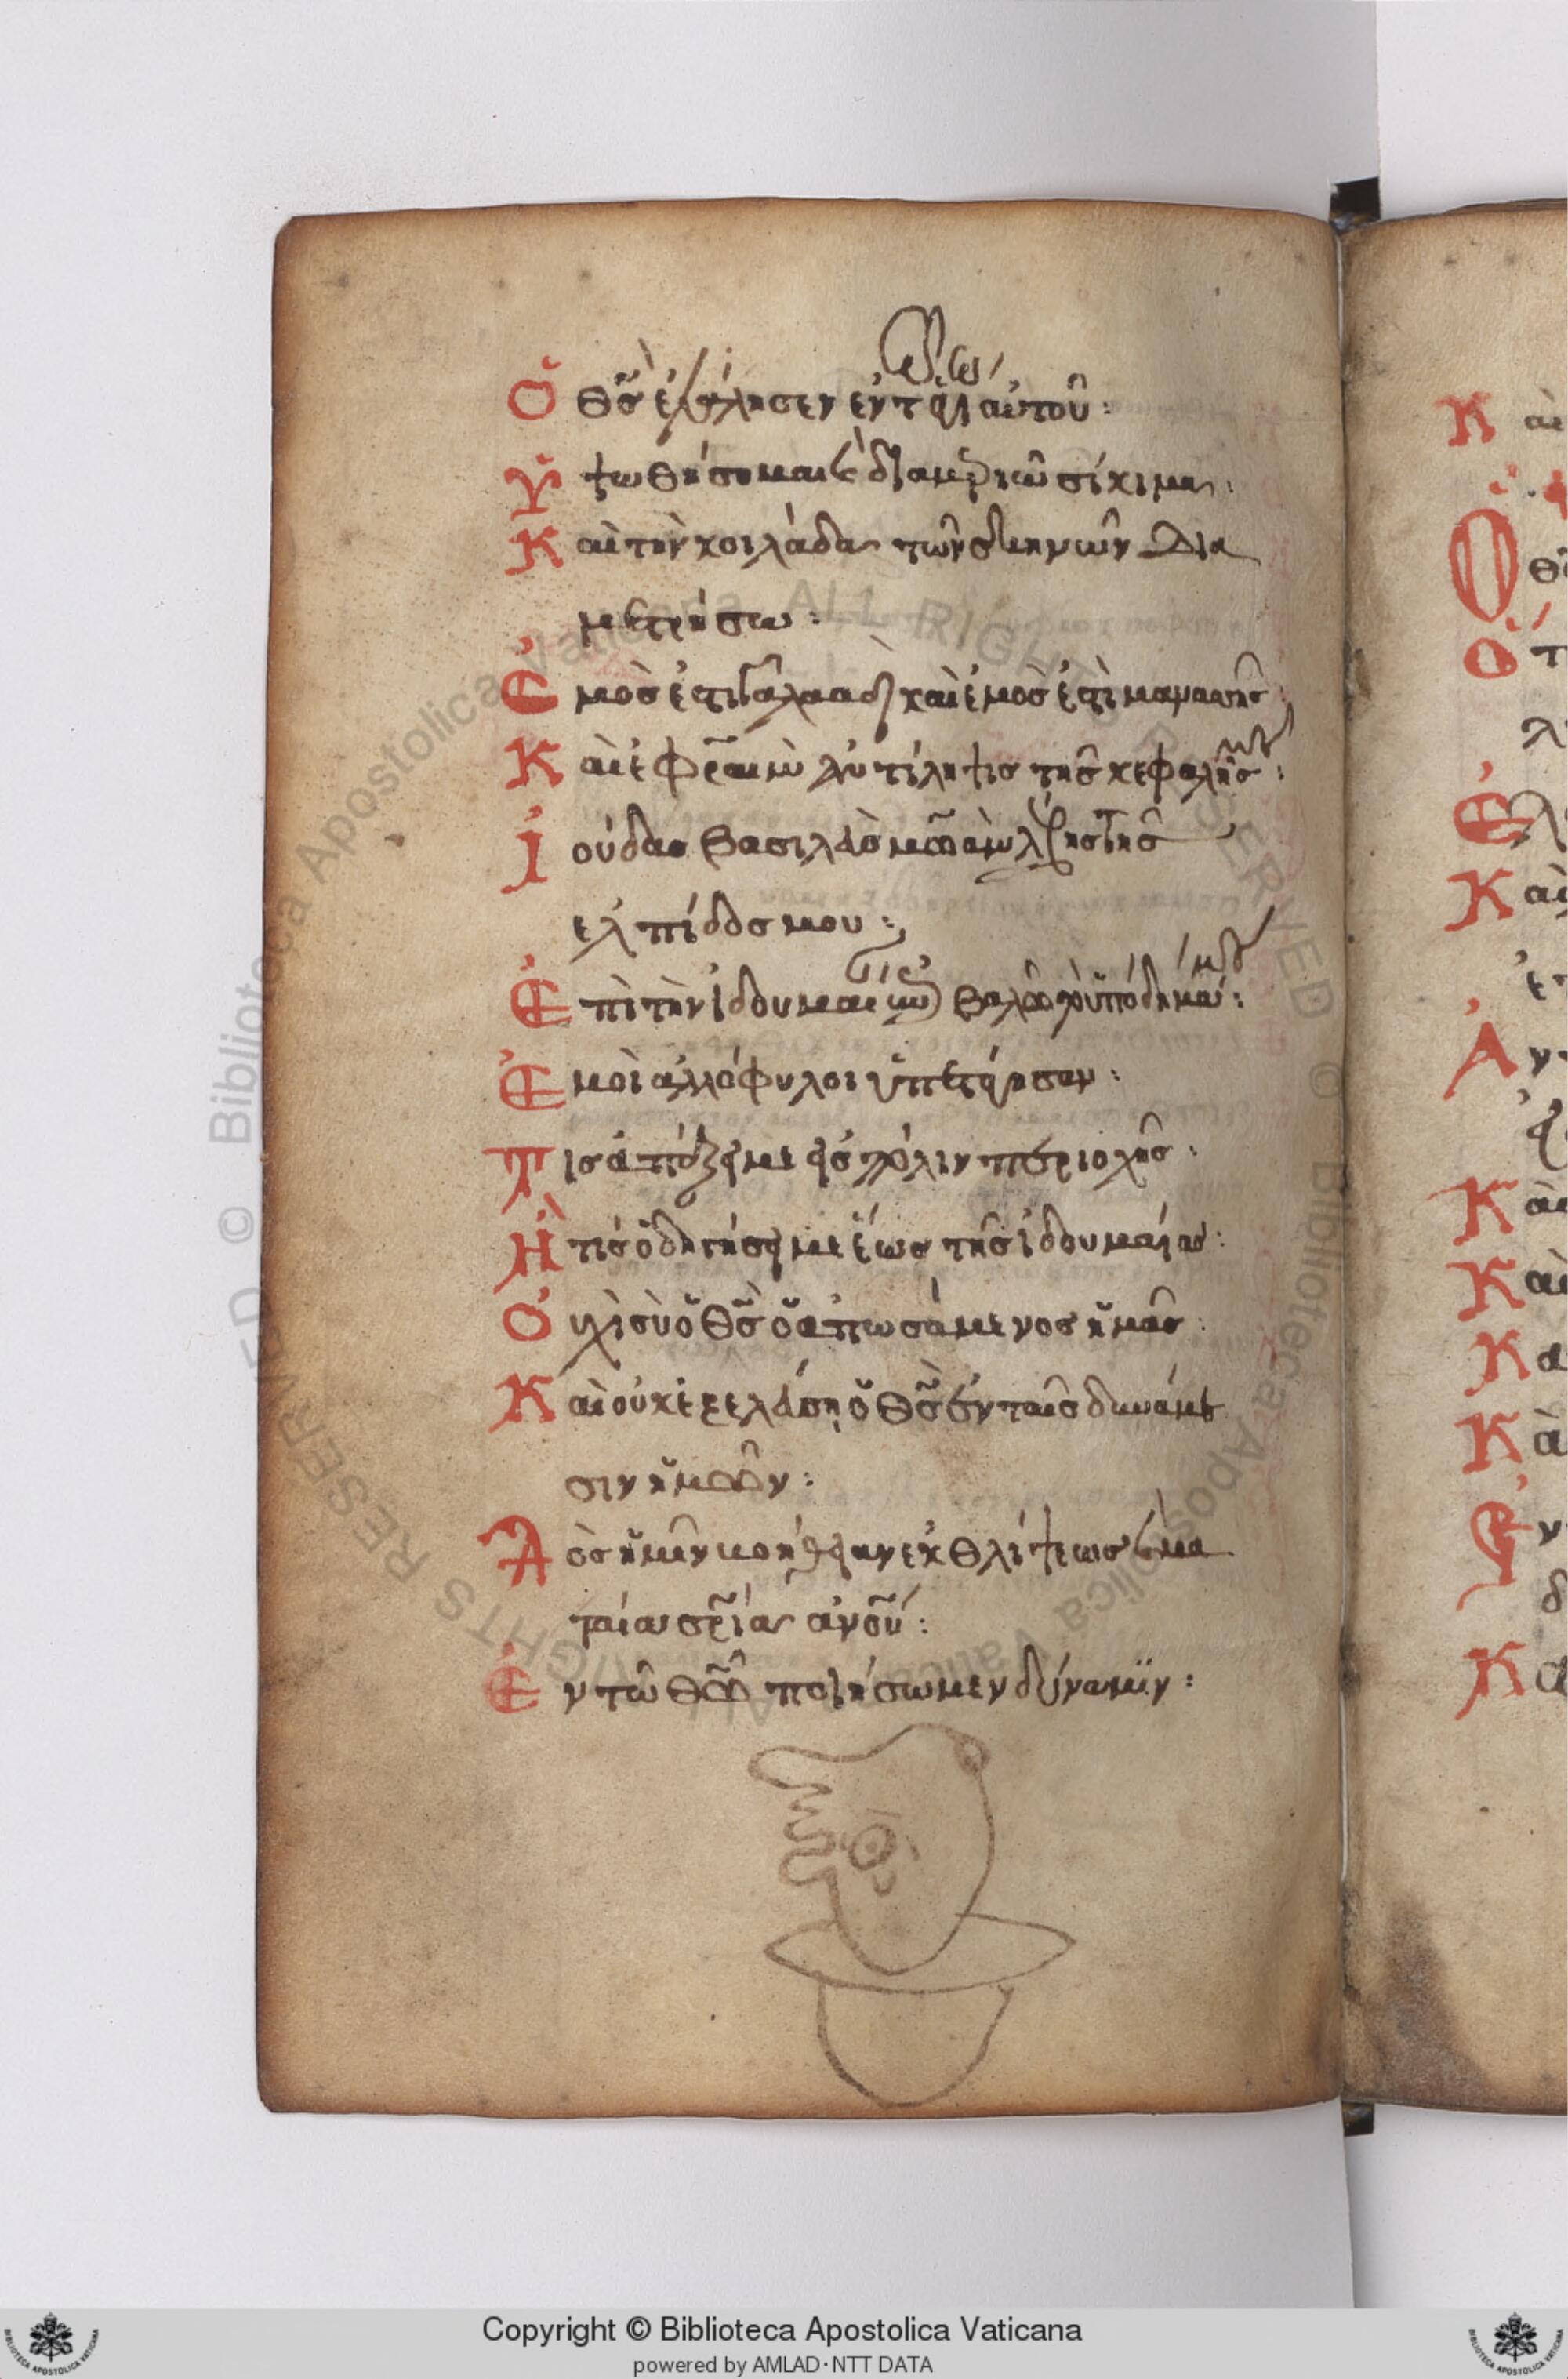 Ὁ θ̅ς̅ ἐλάλησεν ἐν τῷ ἁγίω αὐτοῦ:
Ὑψωθήσομαι καὶ διαμεριῶ σίκιμα:
Καὶ τὴν κοιλάδα τῶν σκηνῶν δια
μετρήσω:
Ἐμός ἐστι γαλαάδ καὶ ἐμός ἐστὶ μανασῆς:
Καὶ ἐφραὶμ ἀντίληψις τῆς κεφαλῆς μου:
Ἰούδας βασιλεύς μου μωὰβ λέβης τῆς
ελπίδος μου:
Ἐπὶ τὴν ἰδουμαίαν ἐκτενῶ τὸ ὑπόδημά μου:
Ἐμοὶ ἀλλόφυλοι ὑπετάγησαν:
Τίς ἀπάξει με εἰς πόλιν περιοχῆς:
Ἢ τίς ὁδηγήσει με ἕως τῆς ἰδουμαίας:
Οὐχὶ σὺ ὁ θ̅ς̅ ὁ ἀπωσάμενος ἡμᾶς:
Καὶ οὐκ ἐξελεύσῃ ὁ θ̅ς̅ ἐν ταῖς δυνάμε
σιν ἡμῶν:
Δὸς ἡμῖν βοήθειαν ἐκ θλίψεως καὶ μα
ταία σ̅ρ̅ία ἀν̅ο̅υ̅:
Ἐν τῶ θ̅ω̅ ποιήσωμεν δύναμιν:
Copyright © Biblioteca Apostolica Vaticana
powered by AMLAD·NTT DATA